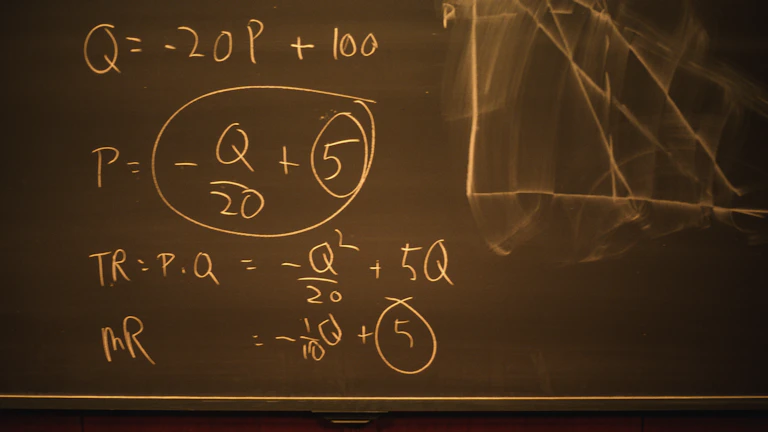 Q = -20P + 100
P = -Q/20 + 5
TR = P.Q = -Q²/20 + 5Q
MR = -1/10Q + 5
P